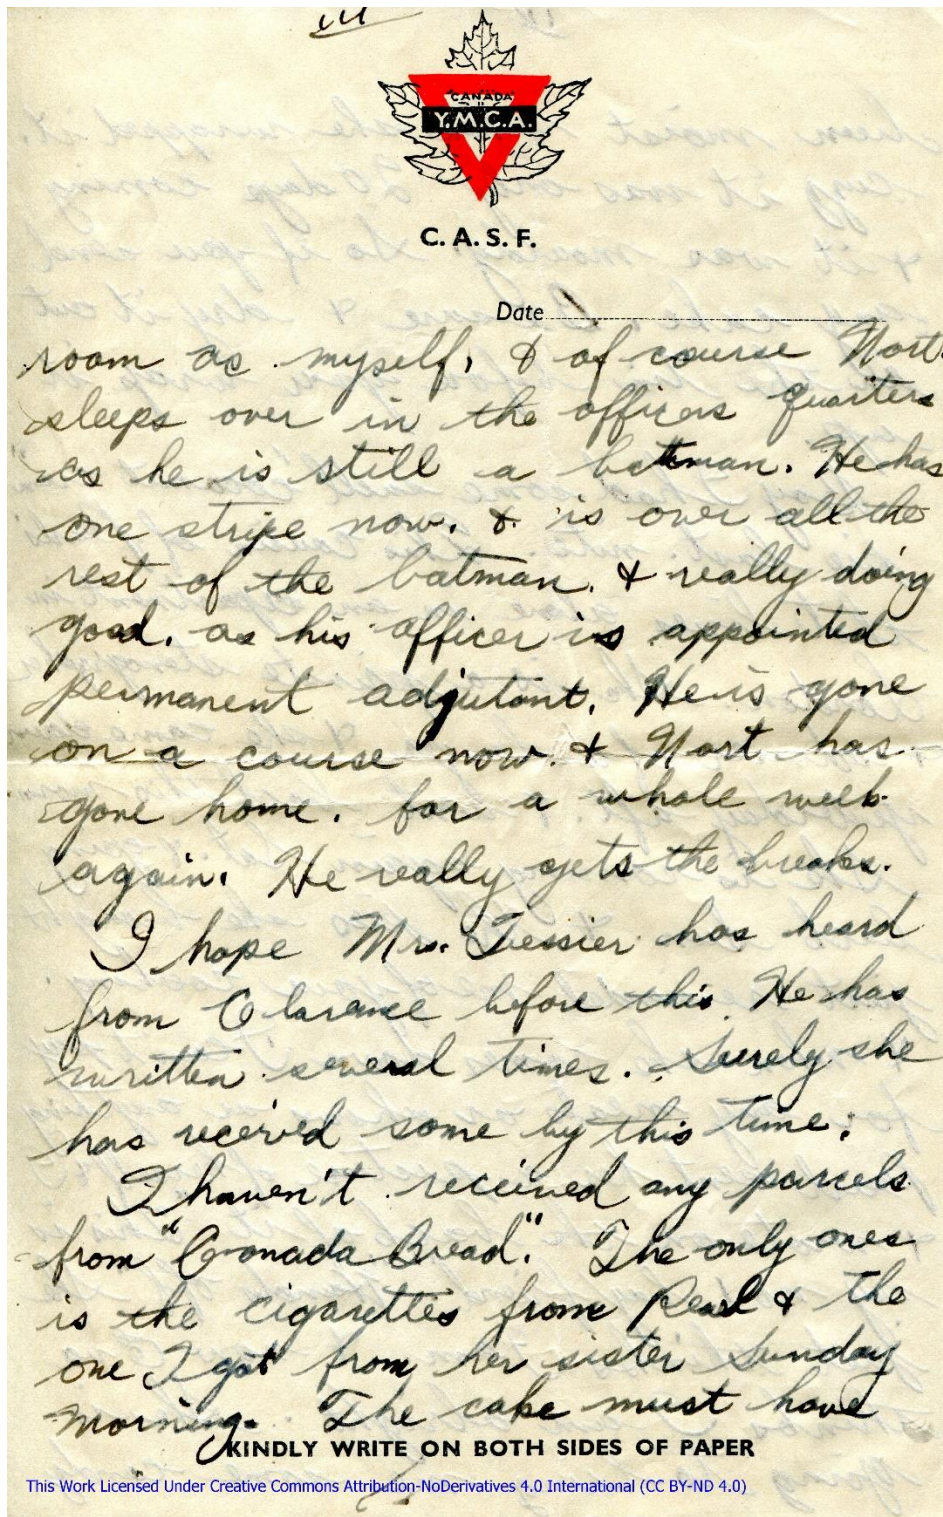 III
CANADA
Y.M.C.A.
C. A. S. F.
Date
room as myself, & of course Nort
sleeps over in the officers quarters
as he is still a batman. He has
one stripe now. & is over all the
rest of the batman. & really doing
good. as his officer is appointed
permanent adjutant. He is gone
on a course now. & Nort has
gone home. for a whole week
again. He really gets the breaks.
I hope Mrs. Tessier has heard
from Clarence before this. He has
written several times. Surely she
has received some by this time.
I haven't received any parcels
from "Canada Bread". The only ones
is the cigarettes from Pearl & the
one I got from her sister Sunday
morning. The cake must have
KINDLY WRITE ON BOTH SIDES OF PAPER
This Work Licensed Under Creative Commons Attribution-NoDerivatives 4.0 International (CC BY-ND 4.0)